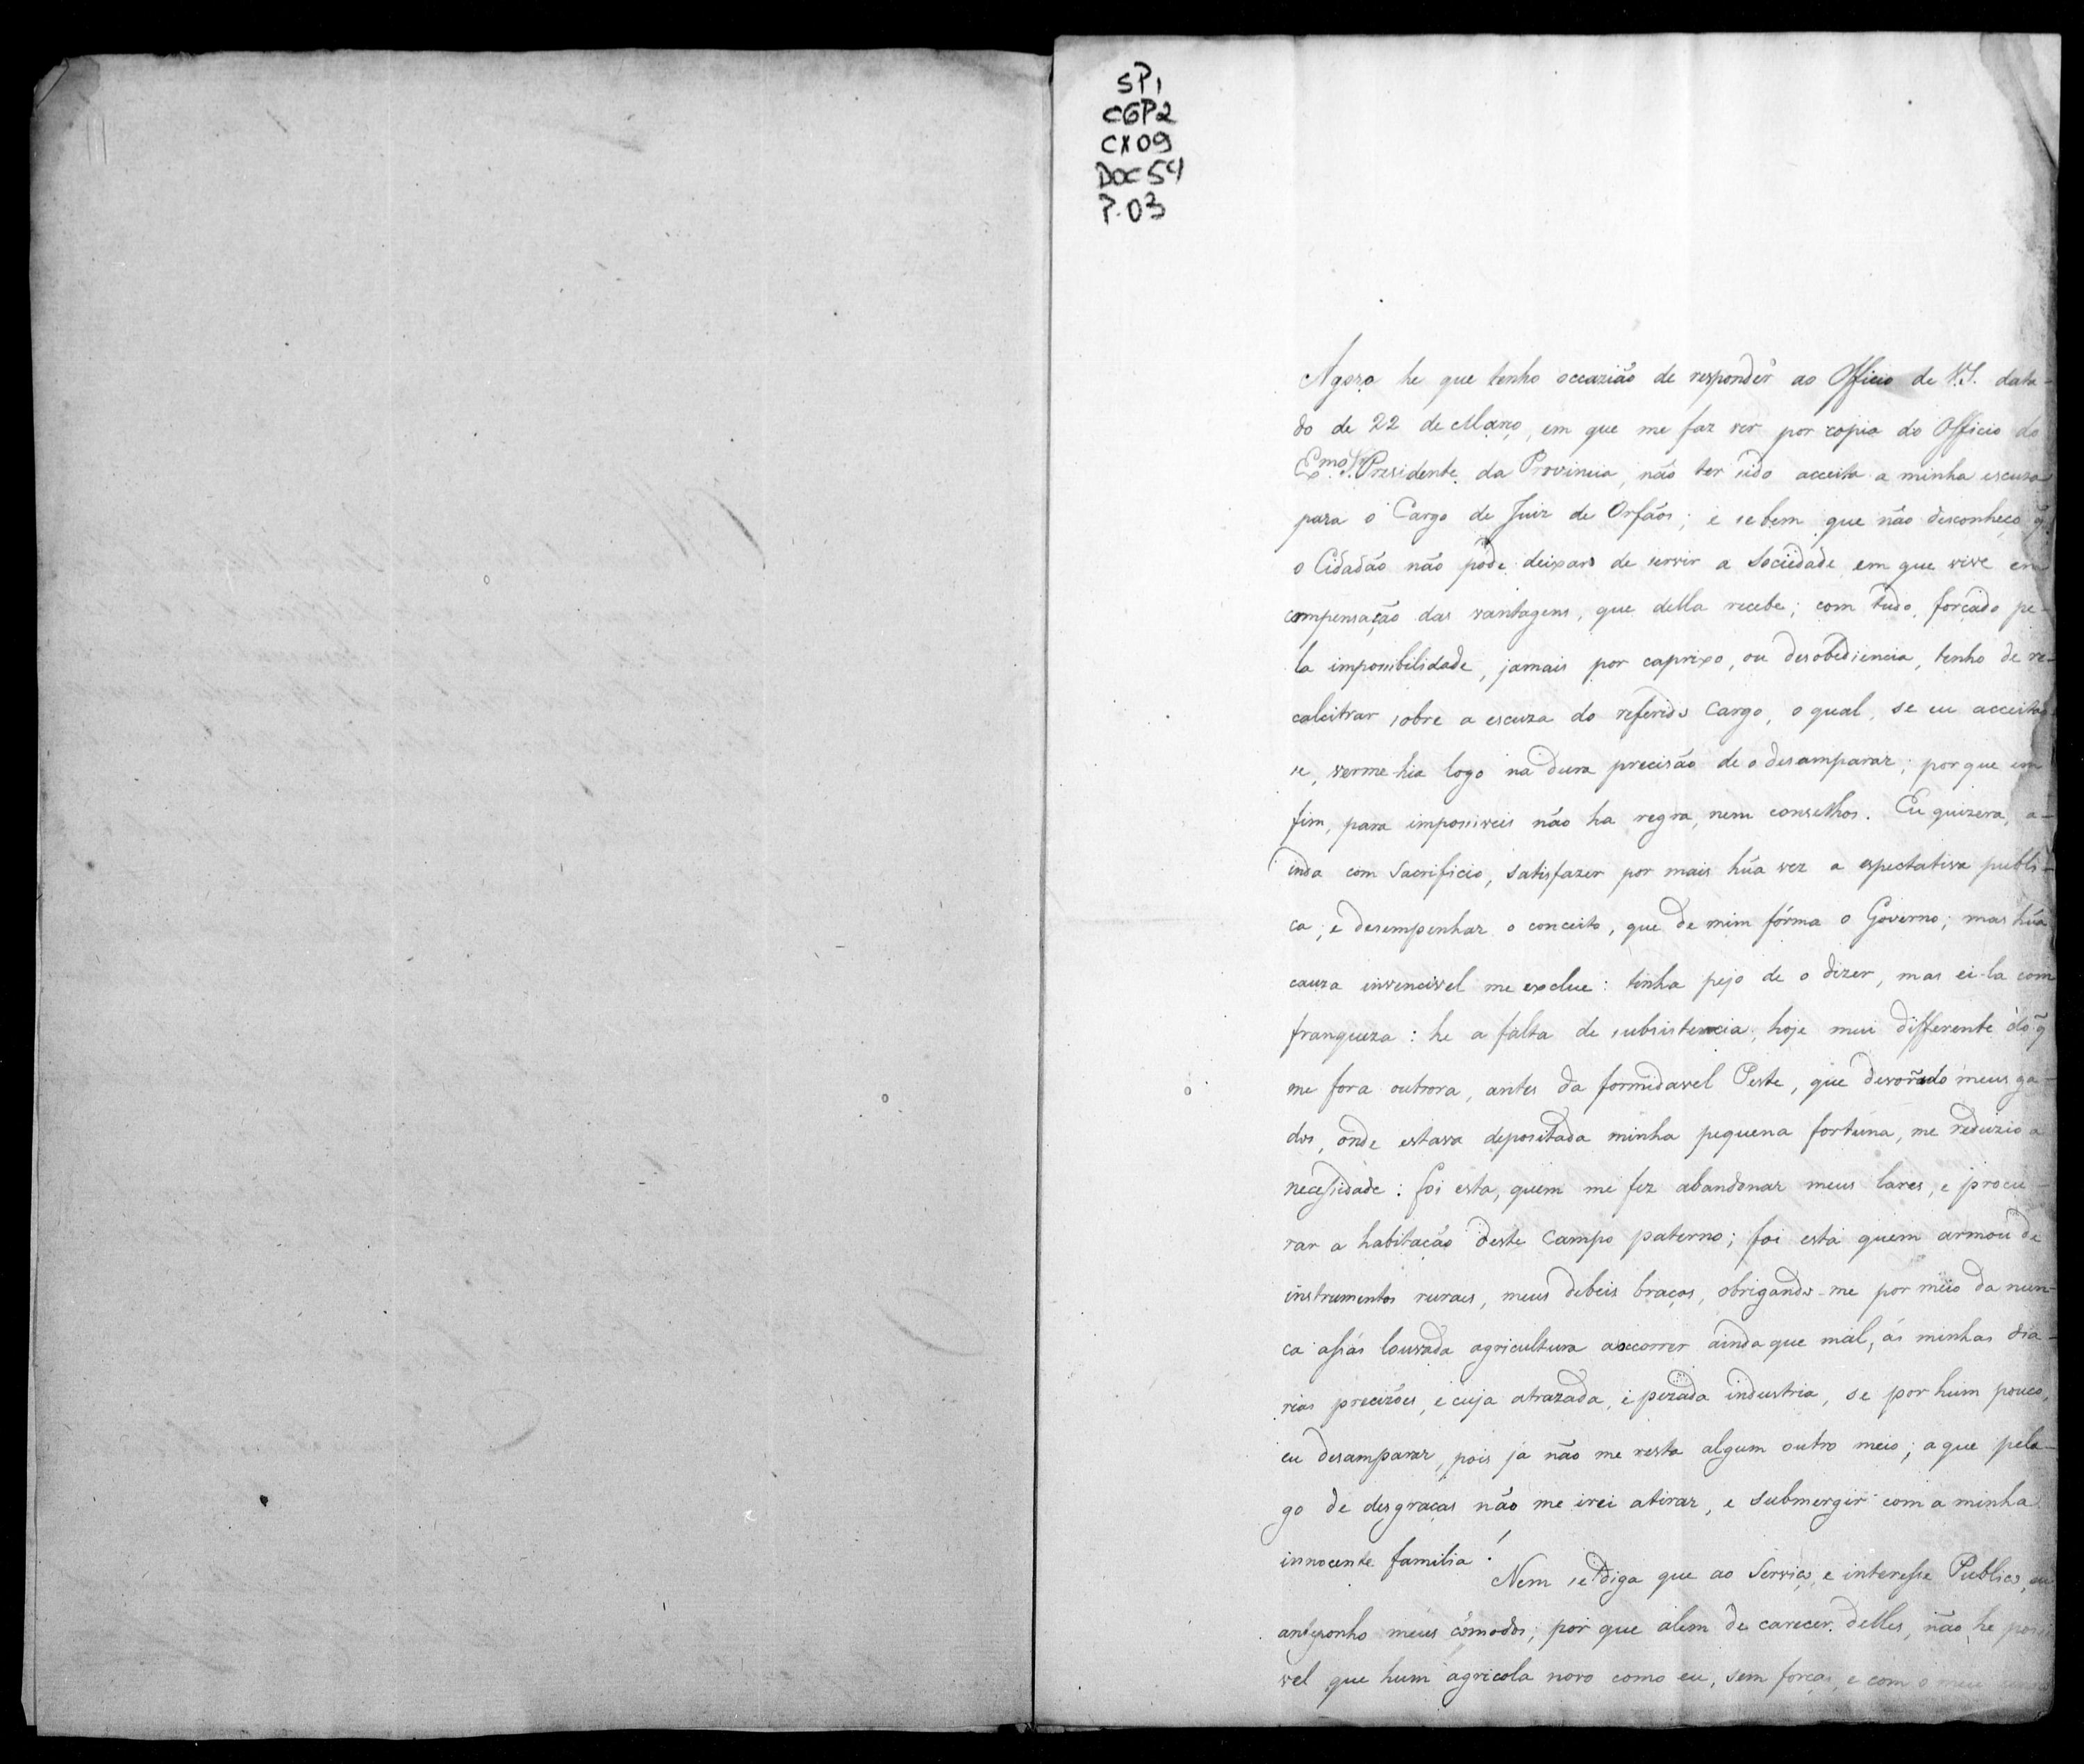 SP1
CGP2
CX09
DOC 54
P.03
Agora he que tenho occazião de responder ao Officio de V.S. data-
do de 22 de Março, em que me faz ver por copia do Officio do
Exmo. Sr. Presidente da Provincia, não ter sido acceita a minha escuza
para o Cargo de Juiz de Orfãos; e se bem que não desconheço q̃
o Cidadão não póde deixar de servir a Sociedade em que vive em
compensação das vantagens, que della recebe; com tudo, forçado pe-
la impossibilidade, jamais por caprixo, ou desobediencia, tenho de re-
calcitrar sobre a escuza do referido Cargo, o qual, se eu acceitas
se, verme-hia logo na dura precisão de o desamparar; porque em
fim, para impossiveis não ha regra, nem conselhos. Eu quizera, a-
inda com Sacrificio, satisfazer por mais hũa vez a espectativa publi-
ca, e desempenhar o conceito, que de mim fórma o Governo; mas hũa
cauza invencivel me exclue: tinha pejo de o dizer, mas ei-la com
franqueza: he a falta de subsistencia, hoje mui differente do q̃
me fora outrora, antes da formidavel Peste, que devorãdo meus ga-
dos, onde estava depositada minha pequena fortuna, me reduzio a
necessidade: foi esta, quem me fez abandonar meus lares, e procu-
rar a habitação deste Campo paterno; foi esta quem armou de
instrumentos ruraes, meus debeis braços, obrigando-me por meio da nun-
ca assás louvada agricultura a socorrer ainda que mal, ás minhas dia-
rias precizões, e cuja atrazada, e pezada industria, se por hum pouco,
eu desamparar, pois ja não me resta algum outro meio; a que pela-
go de desgraças não me irei atirar, e submergir com a minha
innocente familia!
Nem se diga que ao Serviço, e interesse Publico, eu
anteponho meus cómodos; por que alem de carecer delles, não he possi
vel que hum agricola novo como eu, sem forças, e com o meu